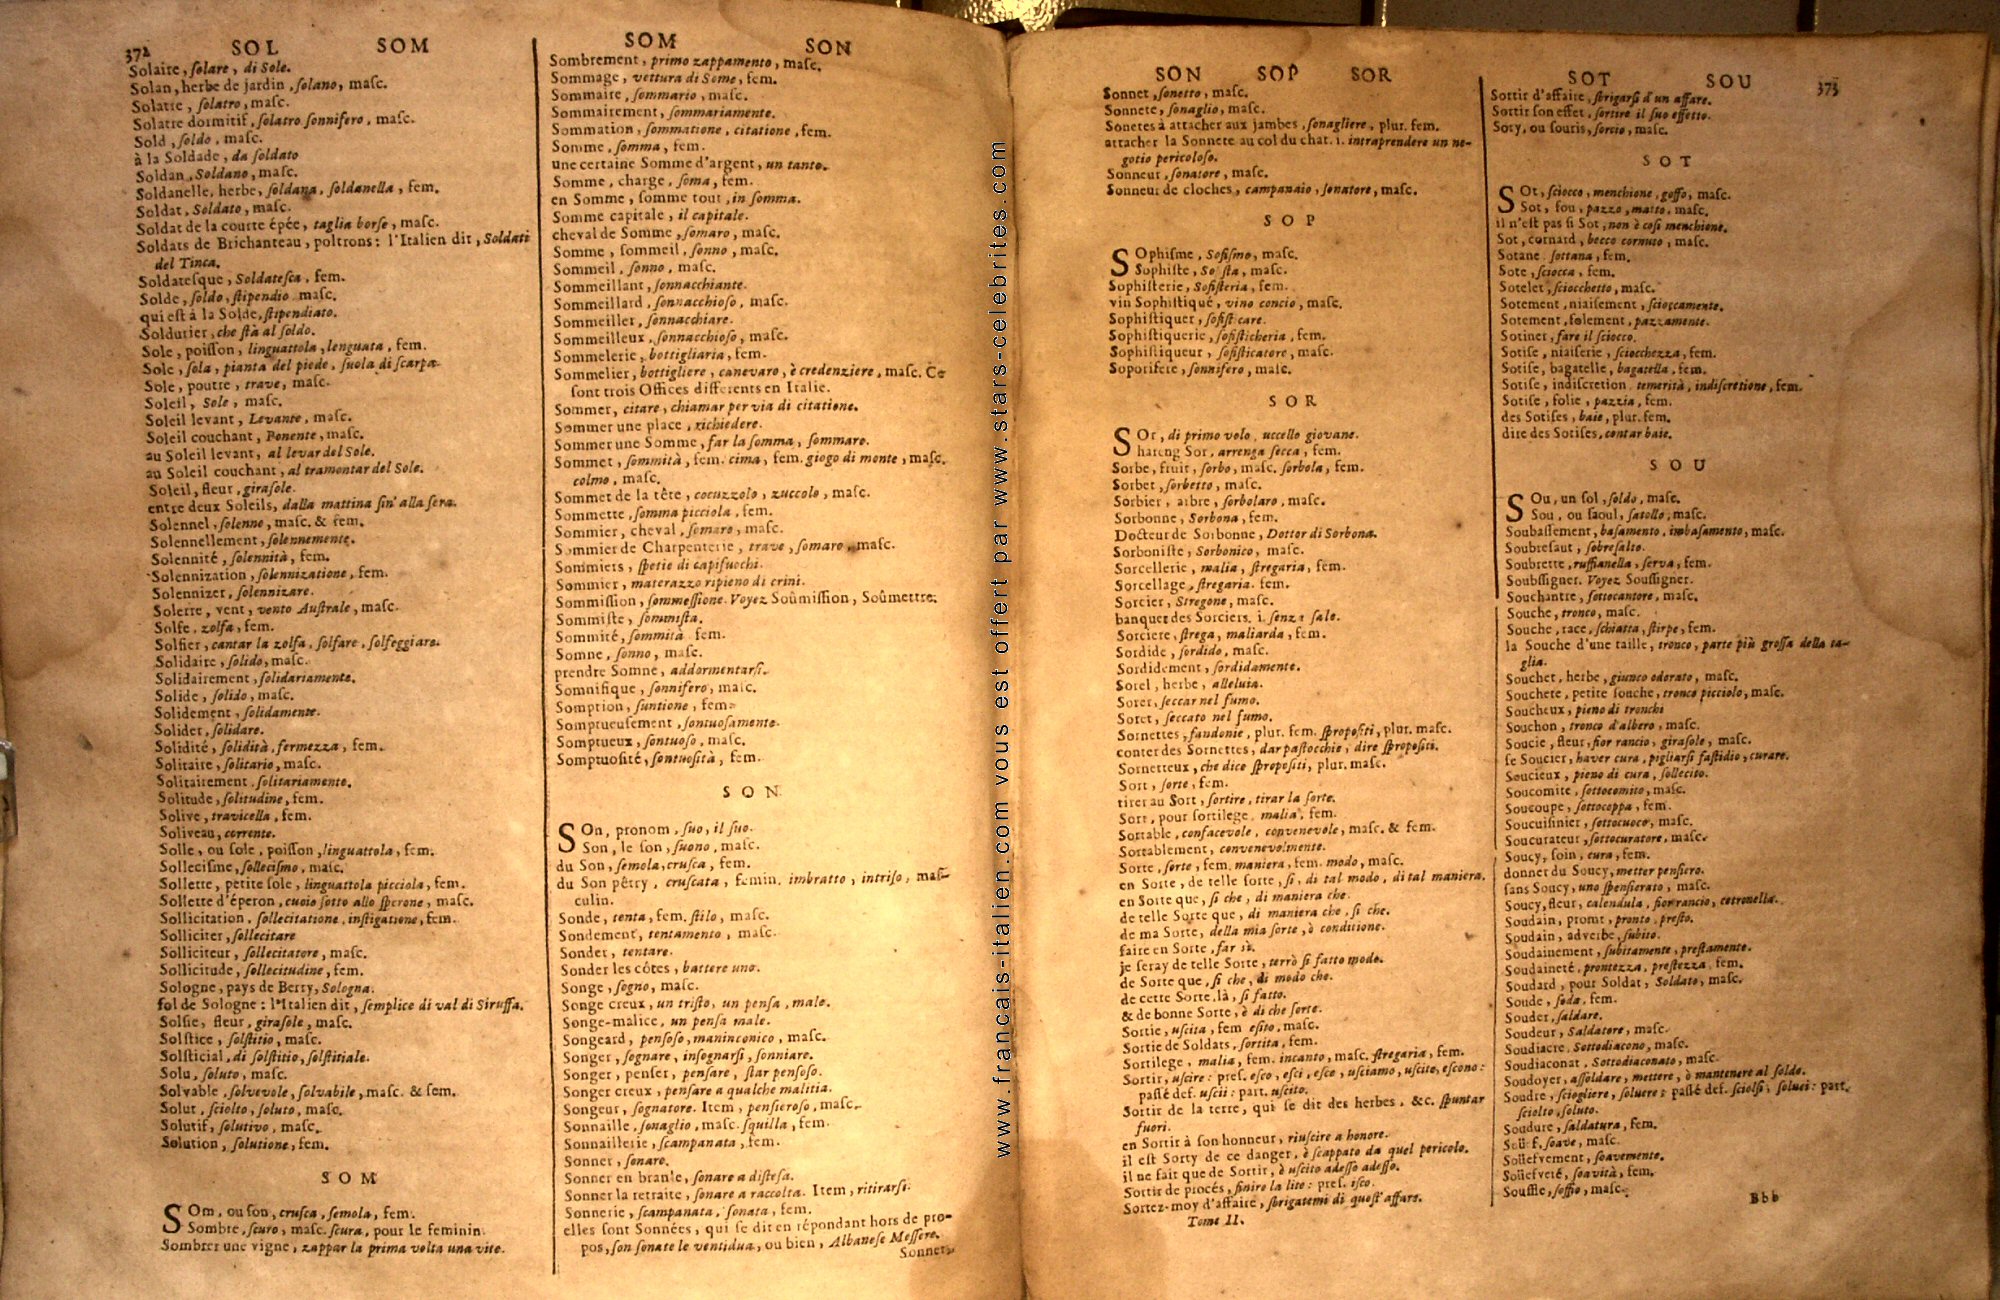 372 SOL SOM
Solaire, ſolare, di Sole.
Solan, herbe de jardin, ſolano, maſc.
Solatre, ſolatro, maſc.
Solatre dormitif, ſolatro ſonnifero, maſc.
Sold, ſoldo, maſc.
à la Soldade, da ſoldato
Soldan, Soldano, maſc.
Soldanelle, herbe, ſoldana, ſoldanella, fem.
Soldat, Soldato, maſc.
Soldat de la courte épée, taglia borſe, maſc.
Soldats de Brichanteau, poltrons: l'Italien dit, Soldati
del Tinca.
Soldateſque, Soldateſca, fem.
Solde, ſoldo, ſtipendio maſc.
qui eſt à la Solde, ſtipendiato.
Soldurier, che ſtà al ſoldo.
Sole, poiſſon, linguattola, lenguata, fem.
Sole, ſola, pianta del piede, ſuola di ſcarpa.
Sole, poutre, trave, maſc.
Soleil, Sole, maſc.
Soleil levant, Levante, maſc.
Soleil couchant, Ponente, maſc.
au Soleil levant, al levar del Sole.
au Soleil couchant, al tramontar del Sole.
Soleil, fleur, giraſole.
entre deux Soleils, dalla mattina ſin' alla ſera.
Solennel, ſolenne, maſc. & fem.
Solennellement, ſolennemente.
Solennité, ſolennità, fem.
Solennization, ſolennizatione, fem.
Solennizer, ſolennizare.
Solerre, vent, vento Auſtrale, maſc.
Solfe, zolfa, fem.
Solfier, cantar la zolfa, ſolfare, ſolfeggiare.
Solidaire, ſolido, maſc.
Solidairement, ſolidariamente.
Solide, ſolido, maſc.
Solidement, ſolidamente.
Solider, ſolidare.
Solidité, ſolidità, fermezza, fem.
Solitaire, ſolitario, maſc.
Solitairement, ſolitariamente.
Solitude, ſolitudine, fem.
Solive, travicella, fem.
Soliveau, corrente.
Solle, ou ſole, poiſſon, linguattola, fem.
Solleciſme, ſolleciſmo, maſc.
Sollette, petite ſole, linguattola picciola, fem.
Sollette d'éperon, cuoio ſotto allo ſperone, maſc.
Sollicitation, ſollecitatione, inſtigatione, fem.
Solliciter, ſollecitare
Solliciteur, ſollecitatore, maſc.
Sollicitude, ſollecitudine, fem.
Sologne, pays de Berry, Sologna.
fol de Sologne: l'Italien dit, ſemplice di val di Siruffa.
Solſie, fleur, giraſole, maſc.
Solſtice, ſolſtitio, maſc.
Solſticial, di ſolſtitio, ſolſtitiale.
Solu, ſoluto, maſc.
Solvable, ſolvevole, ſolvabile, maſc. & fem.
Solut, ſciolto, ſoluto, maſc.
Solutif, ſolutivo, maſc.
Solution, ſolutione, fem.
SOM
SOm, ou ſon, cruſca, ſemola, fem.
Sombre, ſcuro, maſc. ſcura, pour le feminin.
Sombrer une vigne, zappar la prima volta una vite.
SOM SON
Sombrement, primo zappamento, maſc.
Sommage, vettura di Some, fem.
Sommaire, ſommario, maſc.
Sommairement, ſommariamente.
Sommation, ſommatione, citatione, fem.
Somme, ſomma, fem.
une certaine Somme d'argent, un tanto.
Somme, charge, ſoma, fem.
en Somme, ſomme tout, in ſomma.
Somme capitale, il capitale.
cheval de Somme, ſomaro, maſc.
Somme, ſommeil, ſonno, maſc.
Sommeil, ſonno, maſc.
Sommeillant, ſonnacchiante.
Sommeillard, ſonnacchioſo, maſc.
Sommeiller, ſonnacchiare.
Sommeilleux, ſonnacchioſo, maſc.
Sommelerie, bottigliaria, fem.
Sommelier, bottigliere, canevaro, è credenziere, maſc. Ce
ſont trois Offices differents en Italie.
Sommer, citare, chiamar per via di citatione.
Sommer une place, richiedere.
Sommer une Somme, far la ſomma, ſommare.
Sommet, ſommità, fem. cima, fem. giogo di monte, maſc.
colmo, maſc.
Sommet de la tête, cocuzzolo, zuccolo, maſc.
Sommette, ſomma picciola, fem.
Sommier, cheval, ſomaro, maſc.
Sommier de Charpenterie, trave, ſomaro, maſc.
Sommiers, ſpetie di capifuochi.
Sommier, materazzo ripieno di crini.
Sommiſſion, ſommeſſione. Voyez Soûmiſſion, Soûmettre.
Sommiſte, ſommiſta.
Sommité, ſommità fem.
Somne, ſonno, maſc.
prendre Somne, addormentarſi.
Somnifique, ſonnifero, maſc.
Somption, ſuntione, fem.
Somptueuſement, ſontuoſamente.
Somptueux, ſontuoſo, maſc.
Somptuoſité, ſontuoſità, fem.
SON
SOn, pronom, ſuo, il ſuo.
Son, le ſon, ſuono, maſc.
du Son, ſemola, cruſca, fem.
du Son pêtry, cruſcata, femin. imbratto, intriſo, maſ-
culin.
Sonde, tenta, fem. ſtilo, maſc.
Sondement, tentamento, maſc.
Sonder, tentare.
Sonder les côtes, battere uno.
Songe, ſogno, maſc.
Songe creux, un triſto, un penſa, male.
Songe-malice, un penſa male.
Songeard, penſoſo, maninconico, maſc.
Songer, ſognare, inſognarſi, ſonniare.
Songer, penſer, penſare, ſtar penſoſo.
Songer creux, penſare a qualche malitia.
Songeur, ſognatore. Item, penſieroſo, maſc.
Sonnaille, ſonaglio, maſc. ſquilla, fem.
Sonnaillerie, ſcampanata, fem.
Sonner, ſonare.
Sonner en branle, ſonare a diſteſa.
Sonner la retraite, ſonare a raccolta. Item, ritirarſi.
Sonnerie, ſcampanata, ſonata, fem.
elles ſont Sonnées, qui ſe dit en répondant hors de pro-
pos, ſon ſonate le ventidua, ou bien, Albaneſe Meſſere.
Sonnet,
www.francais-italien.com vous est offert par www.stars-celebrites.com
SON SOP SOR
Sonnet, ſonetto, maſc.
Sonnete, ſonaglio, maſc.
Sonetes à attacher aux jambes, ſonagliere, plur. fem.
attacher la Sonnete au col du chat. i. intraprendere un ne-
gotio pericoloſo.
Sonneur, ſonatore, maſc.
Sonneur de cloches, campanaio, ſonatore, maſc.
SOP
SOphiſme, Sofiſmo, maſc.
Sophiſte, maſc.
Sophiſterie, Sofiſteria, fem.
vin Sophiſtiqué, vino concio, maſc.
Sophiſtiquer, ſofiſticare.
Sophiſtiquerie, ſofiſticheria, fem.
Sophiſtiqueur, ſofiſticatore, maſc.
Soporifere, ſonnifero, maſc.
SOR
SOr, di primo volo, uccello giovane.
hareng Sor, arrenga ſecca, fem.
Sorbe, fruit, ſorbo, maſc. ſorbola, fem.
Sorbet, ſorbetto, maſc.
Sorbier, arbre, ſorbolaro, maſc.
Sorbonne, Sorbona, fem.
Docteur de Sorbonne, Dottor di Sorbona.
Sorboniſte, Sorbonico, maſc.
Sorcellerie, malia, ſtregaria, fem.
Sorcellage, ſtregaria. fem.
Sorcier, Stregone, maſc.
banquet des Sorciers. i. ſenza ſale.
Sorciere, ſtrega, maliarda, fem.
Sordide, ſordido, maſc.
Sordidement, ſordidamente.
Sorel, herbe, alleluia.
Sorer, ſeccar nel fumo.
Soret, ſeccato nel fumo.
Sornettes, fandonie, plur. fem. ſpropoſiti, plur. maſc.
conter des Sornettes, dar paſtocchie, dire ſpropoſiti.
Sornetteux, che dice ſpropoſiti, plur. maſc.
Sort, ſorte, fem.
tirer au Sort, ſortire, tirar la ſorte.
Sort, pour ſortilege, malia, fem.
Sortable, confacevole, convenevole, maſc. & fem.
Sortablement, convenevolmente.
Sorte, ſorte, fem. maniera, fem. modo, maſc.
en Sorte, de telle ſorte, ſi, di tal modo, di tal maniera.
en Sorte que, ſi che, di maniera che.
de telle Sorte que, di maniera che, ſi che.
de ma Sorte, della mia ſorte, ò conditione.
faire en Sorte, far sì.
je feray de telle Sorte, terrò ſi fatto modo.
de Sorte que, ſi che, di modo che.
de cette Sorte là, ſi fatto.
& de bonne Sorte, è di che ſorte.
Sortie, uſcita, fem eſito, maſc.
Sortie de Soldats, ſortita, fem.
Sortilege, malia, fem. incanto, maſc. ſtregaria, fem.
Sortir, uſcire: preſ. eſco, eſci, eſce, uſciamo, uſcite, eſcono:
paſſé def. uſcii: part. uſcito.
Sortir de la terre, qui ſe dit des herbes, &c. ſpuntar
fuori.
en Sortir à ſon honneur, riuſcire a honore.
il eſt Sorty de ce danger, è ſcappato da quel pericolo.
il ne fait que de Sortir, è uſcito adeſſo adeſſo.
Sortir de procés, finire la lite: preſ. iſco.
Sortez-moy d'affaire, ſbrigatemi di queſt' affare.
Tome II.
SOT SOU 373
Sortir d'affaire, ſbrigarſi d'un affare.
Sortir ſon effet, ſortire il ſuo effetto.
Sory, ou ſouris, ſorcio, maſc.
SOT
SOt, ſciocco, menchione, goffo, maſc.
Sot, fou, pazzo, matto, maſc.
il n'eſt pas ſi Sot, non è coſi menchione.
Sot, cornard, becco cornuto, maſc.
Sotane, ſottana, fem.
Sote, ſciocca, fem.
Sotelet, ſciocchetto, maſc.
Sotement, niaiſement, ſcioccamente.
Sotement, folement, pazzamente.
Sotiner, fare il ſciocco.
Sotiſe, niaiſerie, ſciocchezza, fem.
Sotiſe, bagatelle, bagatella, fem.
Sotiſe, indiſcretion, temerità, indiſcretione, fem.
Sotiſe, folie, pazzia, fem.
des Sotiſes, baie, plur. fem.
dire des Sotiſes, contar baie.
SOU
SOu, un ſol, ſoldo, maſc.
Sou, ou ſaoul, ſatollo, maſc.
Soubaſſement, baſamento, imbaſamento, maſc.
Soubreſaut, ſobreſalto.
Soubrette, ruffianella, ſerva, fem.
Soubſſigner. Voyez Souſſigner.
Souchantre, ſottocantore, maſc.
Souche, tronco, maſc.
Souche, race, ſchiatta, ſtirpe, fem.
la Souche d'une taille, tronco, parte più groſſa della ta-
glia.
Souchet, herbe, giunco odorato, maſc.
Souchete, petite ſouche, tronco picciolo, maſc.
Soucheux, pieno di tronchi
Souchon, tronco d'albero, maſc.
Soucie, fleur, fior rancio, giraſole, maſc.
ſe Soucier, haver cura, pigliarſi faſtidio, curare.
Soucieux, pieno di cura, ſollecito.
Soucomite, ſottocomito, maſc.
Soucoupe, ſottocoppa, fem.
Soucuiſinier, ſottocuoco, maſc.
Soucurateur, ſottocuratore, maſc.
Soucy, ſoin, cura, fem.
donner du Soucy, metter penſiero.
ſans Soucy, uno ſpenſierato, maſc.
Soucy, fleur, calendula, fior rancio, cotronella.
Soudain, promt, pronto, preſto.
Soudain, adverbe, ſubito.
Soudainement, ſubitamente, preſtamente.
Soudaineté, prontezza, preſtezza, fem.
Soudard, pour Soldat, Soldato, maſc.
Soude, ſoda, fem.
Souder, ſaldare.
Soudeur, Saldatore, maſc.
Soudiacre, Sottodiacono, maſc.
Soudiaconat, Sottodiaconato, maſc.
Soudoyer, aſſoldare, mettere, ò mantenere al ſoldo.
Soudre, ſciogliere, ſoluere: paſſé def. ſciolſi, ſoluei: part.
ſciolto, ſoluto.
Soudure, ſaldatura, fem.
ſoave, maſc.
Soüefvement, ſoavemente.
Soüefveté, ſoavità, fem.
Souffle, ſoffio, maſc.
Bbb